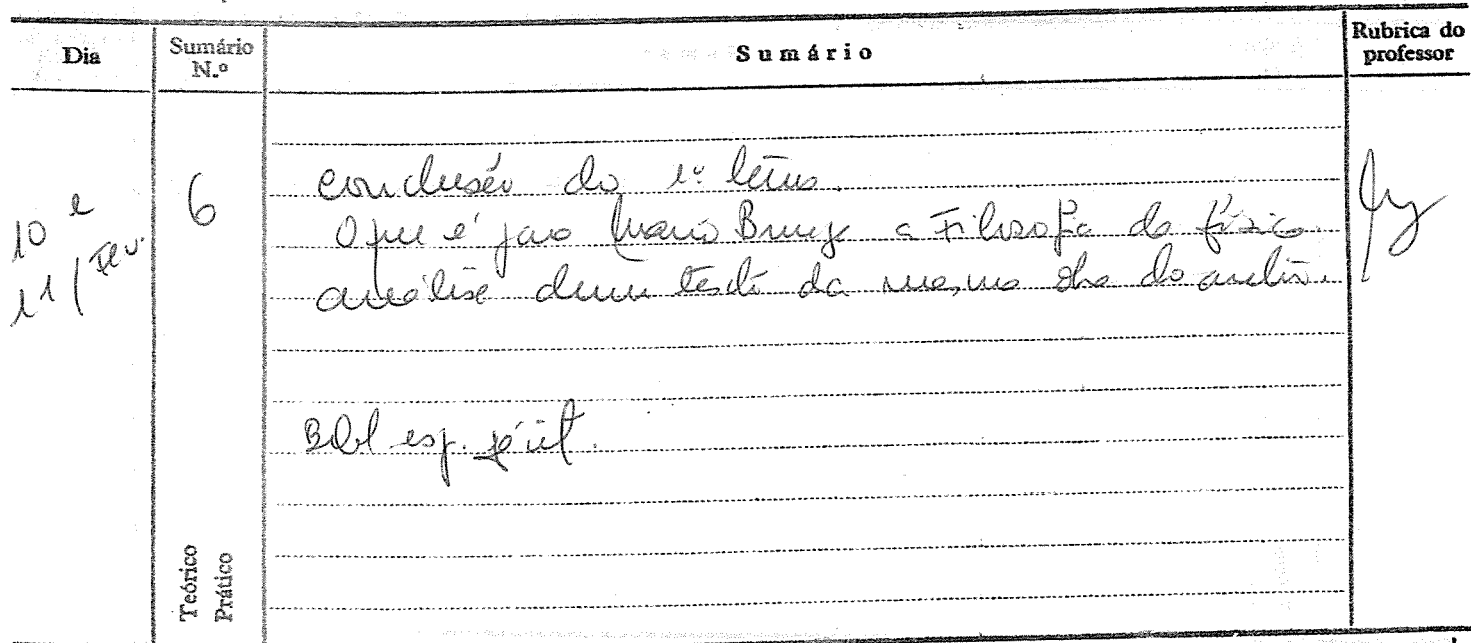 Dia
Sumário N.º
Sumário
Rubrica do professor
10 e 11 / Fev.
6
Conclusão do 1º
O que é para Mario Bunge a Filosofia da física.
análise dum texto da mesma obra do autor.
Bibl esp.
Teórico
Prático